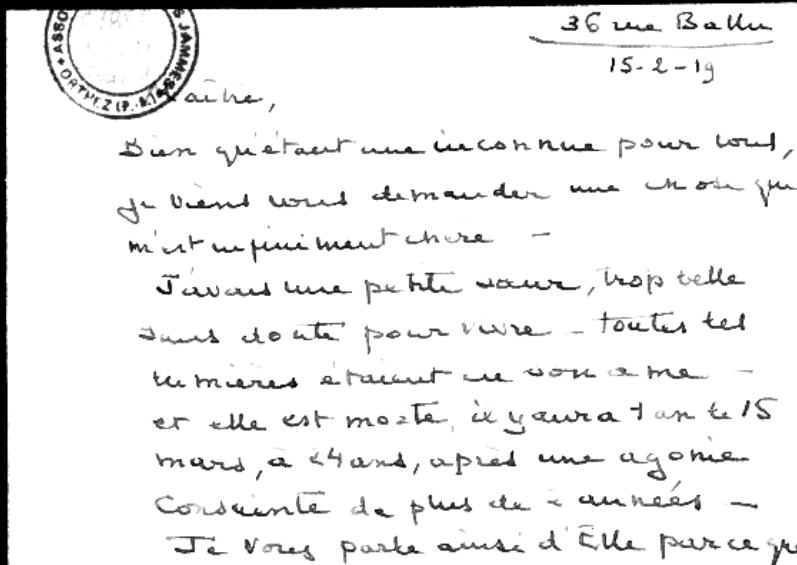 36 rue Ballu
15-2-19
ASSO S JAMMES
ORTHEZ (P.-A.)
Maître,
Bien qu'étant une inconnue pour vous,
je viens vous demander une chose qui
m'est infiniment chère –
J'avais une petite sœur, trop belle
sans doute pour vivre – toutes les
lumières étaient en son âme –
et elle est morte, il y aura 1 an le 15
mars, à 24 ans, après une agonie
Consciente de plus de 2 années –
Je vous parle ainsi d'Elle parce que